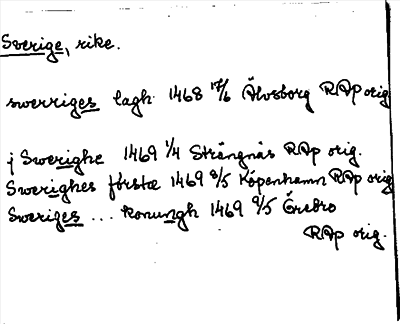 Sverige, rike.
swerriges lagh 1468 17/6 Älvsborg RAp orig
j Swerighe 1469 1/4 Strängnäs RAp orig.
Swerighes förstæ 1469 3/5 Köpenhamn RAp orig
Sweriges ... konungh 1469 9/5 Örebro
RAp orig.